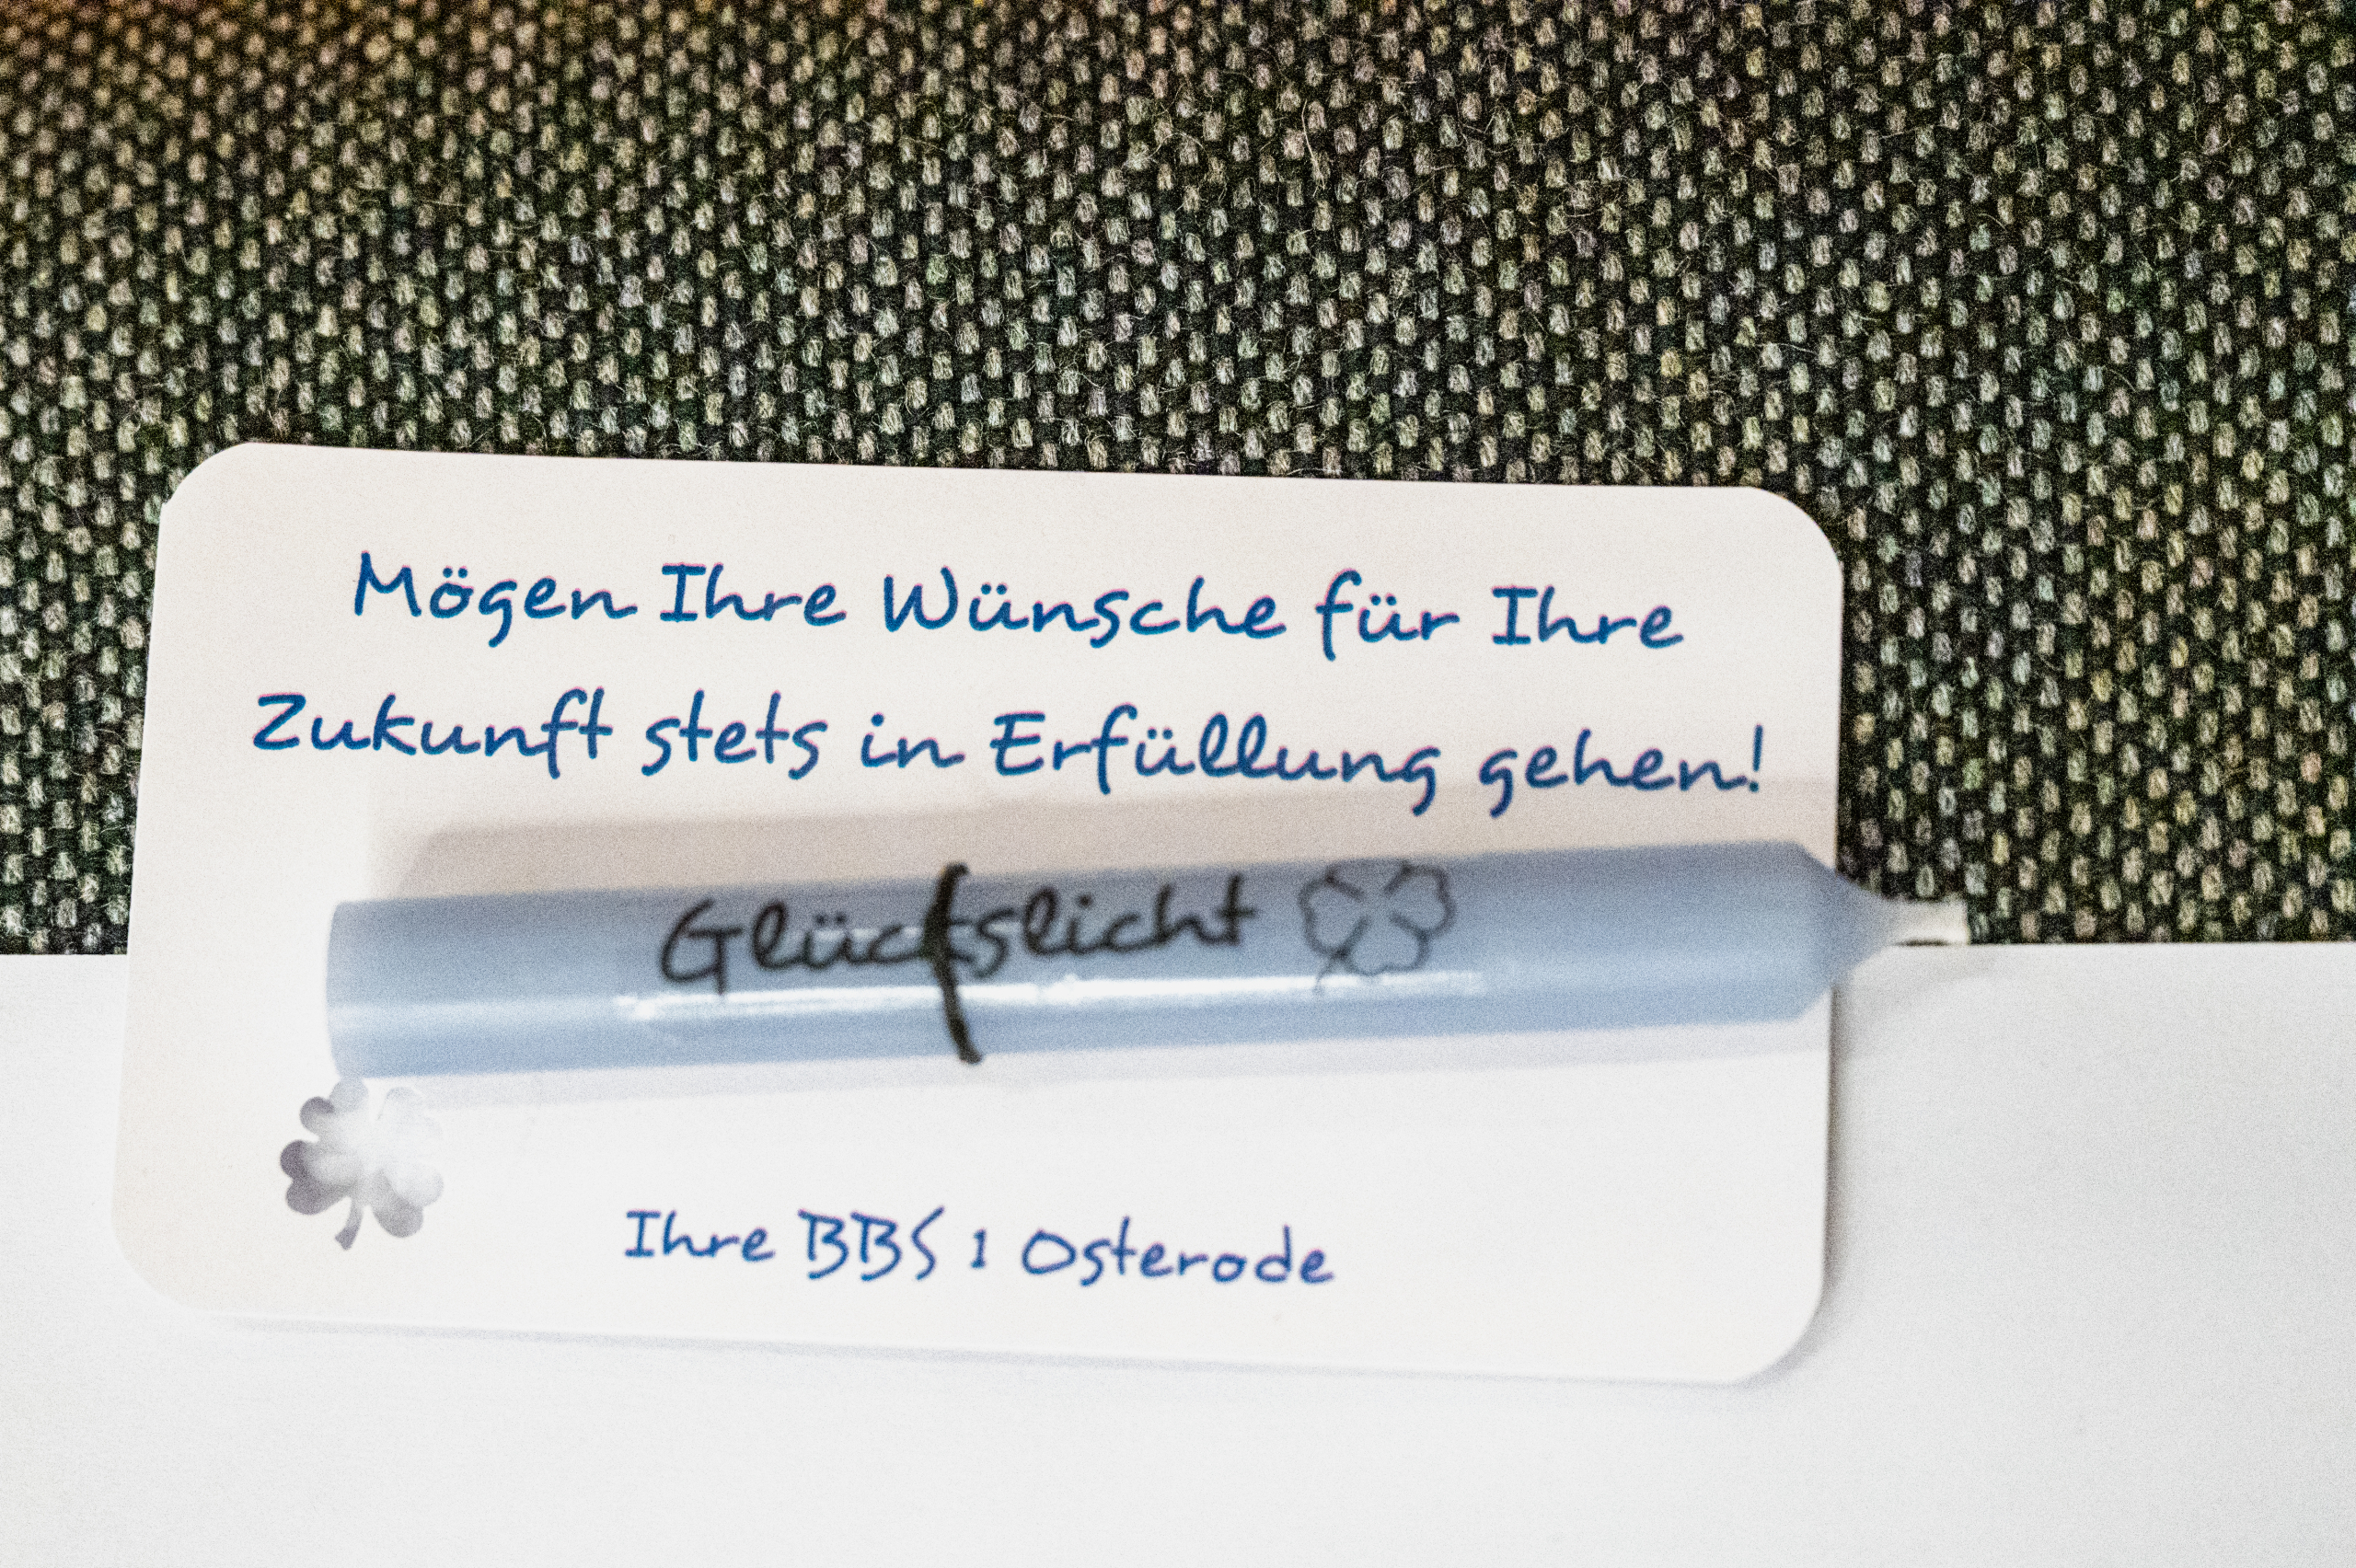 Mögen Ihre Wünsche für Ihre
Zukunft stets in Erfüllung gehen!
Glückslicht
Ihre BBS 1 Osterode